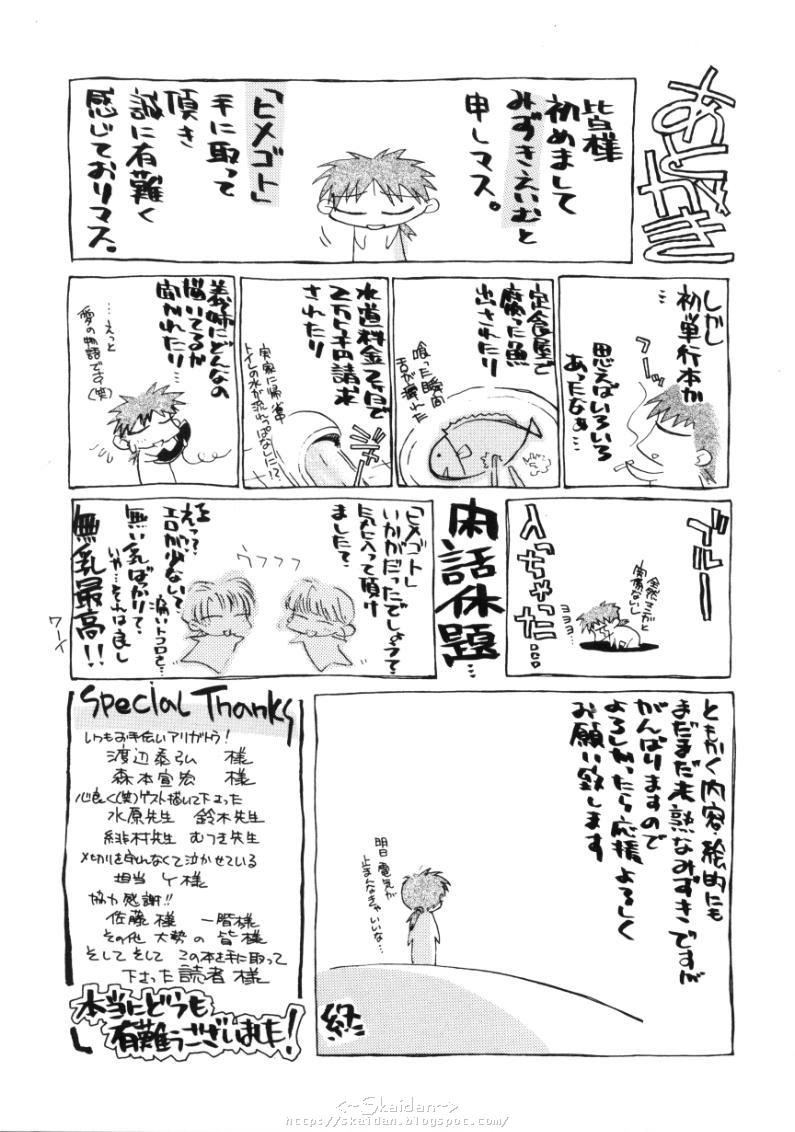 あとがき
皆様
初めまして
みずきえいむと
申しマス。
「ヒメゴト」
手に取って
頂き
誠に有難く
感じておりマス。
しかし
初単行本か
…
思えばいろいろ
あったなぁ…
フーッ
定食屋で
腐った魚
出されたり
喰った瞬間
舌が痺れた
水道料金2ヶ月で
2万5千円請求
されたり
実家に帰省中
トイレの水が流れっぱなしに!?
ジャー
義姉にどんなの
描いてるか
聞かれたり…
…えっと
愛の物語です(笑)
ブルーに
入っちゃった…
全然マンガと
関係ないし
ヨヨヨ…
閑話休題
「ヒメゴト」
いかがだったでしょうか?
気に入って頂け
ましたて?
ウフフフ
えっ?
エロが少ない?
痛いトコロを…
無い乳ばかり?
いや…それは良し
無乳最高!!
ワーイ
ともかく内容・絵的にも
まだまだ未熟なみずきですが
がんばりますので
よろしかったら応援よろしく
お願い致します
明日電気が
止まんなきゃいいな…
終
Special Thanks
いつもお手伝いアリガトう!
渡辺泰弘 様
森本宣宏 様
心良く(笑)ゲスト描いて下さった
水原先生 鈴木先生
緋村先生 むつき先生
〆切りを守れなくて泣かせている
担当 Y様
協力感謝!!
佐藤様 一階様
その他 大勢の 皆様
そして そして この本を手に取って
下さった読者様
本当にどうも
有難うございました!
<~Skaidan~>
http://skaidan.blogspot.com/